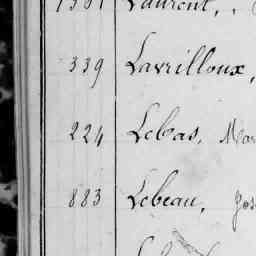 Laurent,
339 Lavrilloux,
224 Lebas, Mar
883 Lebeau, Jos